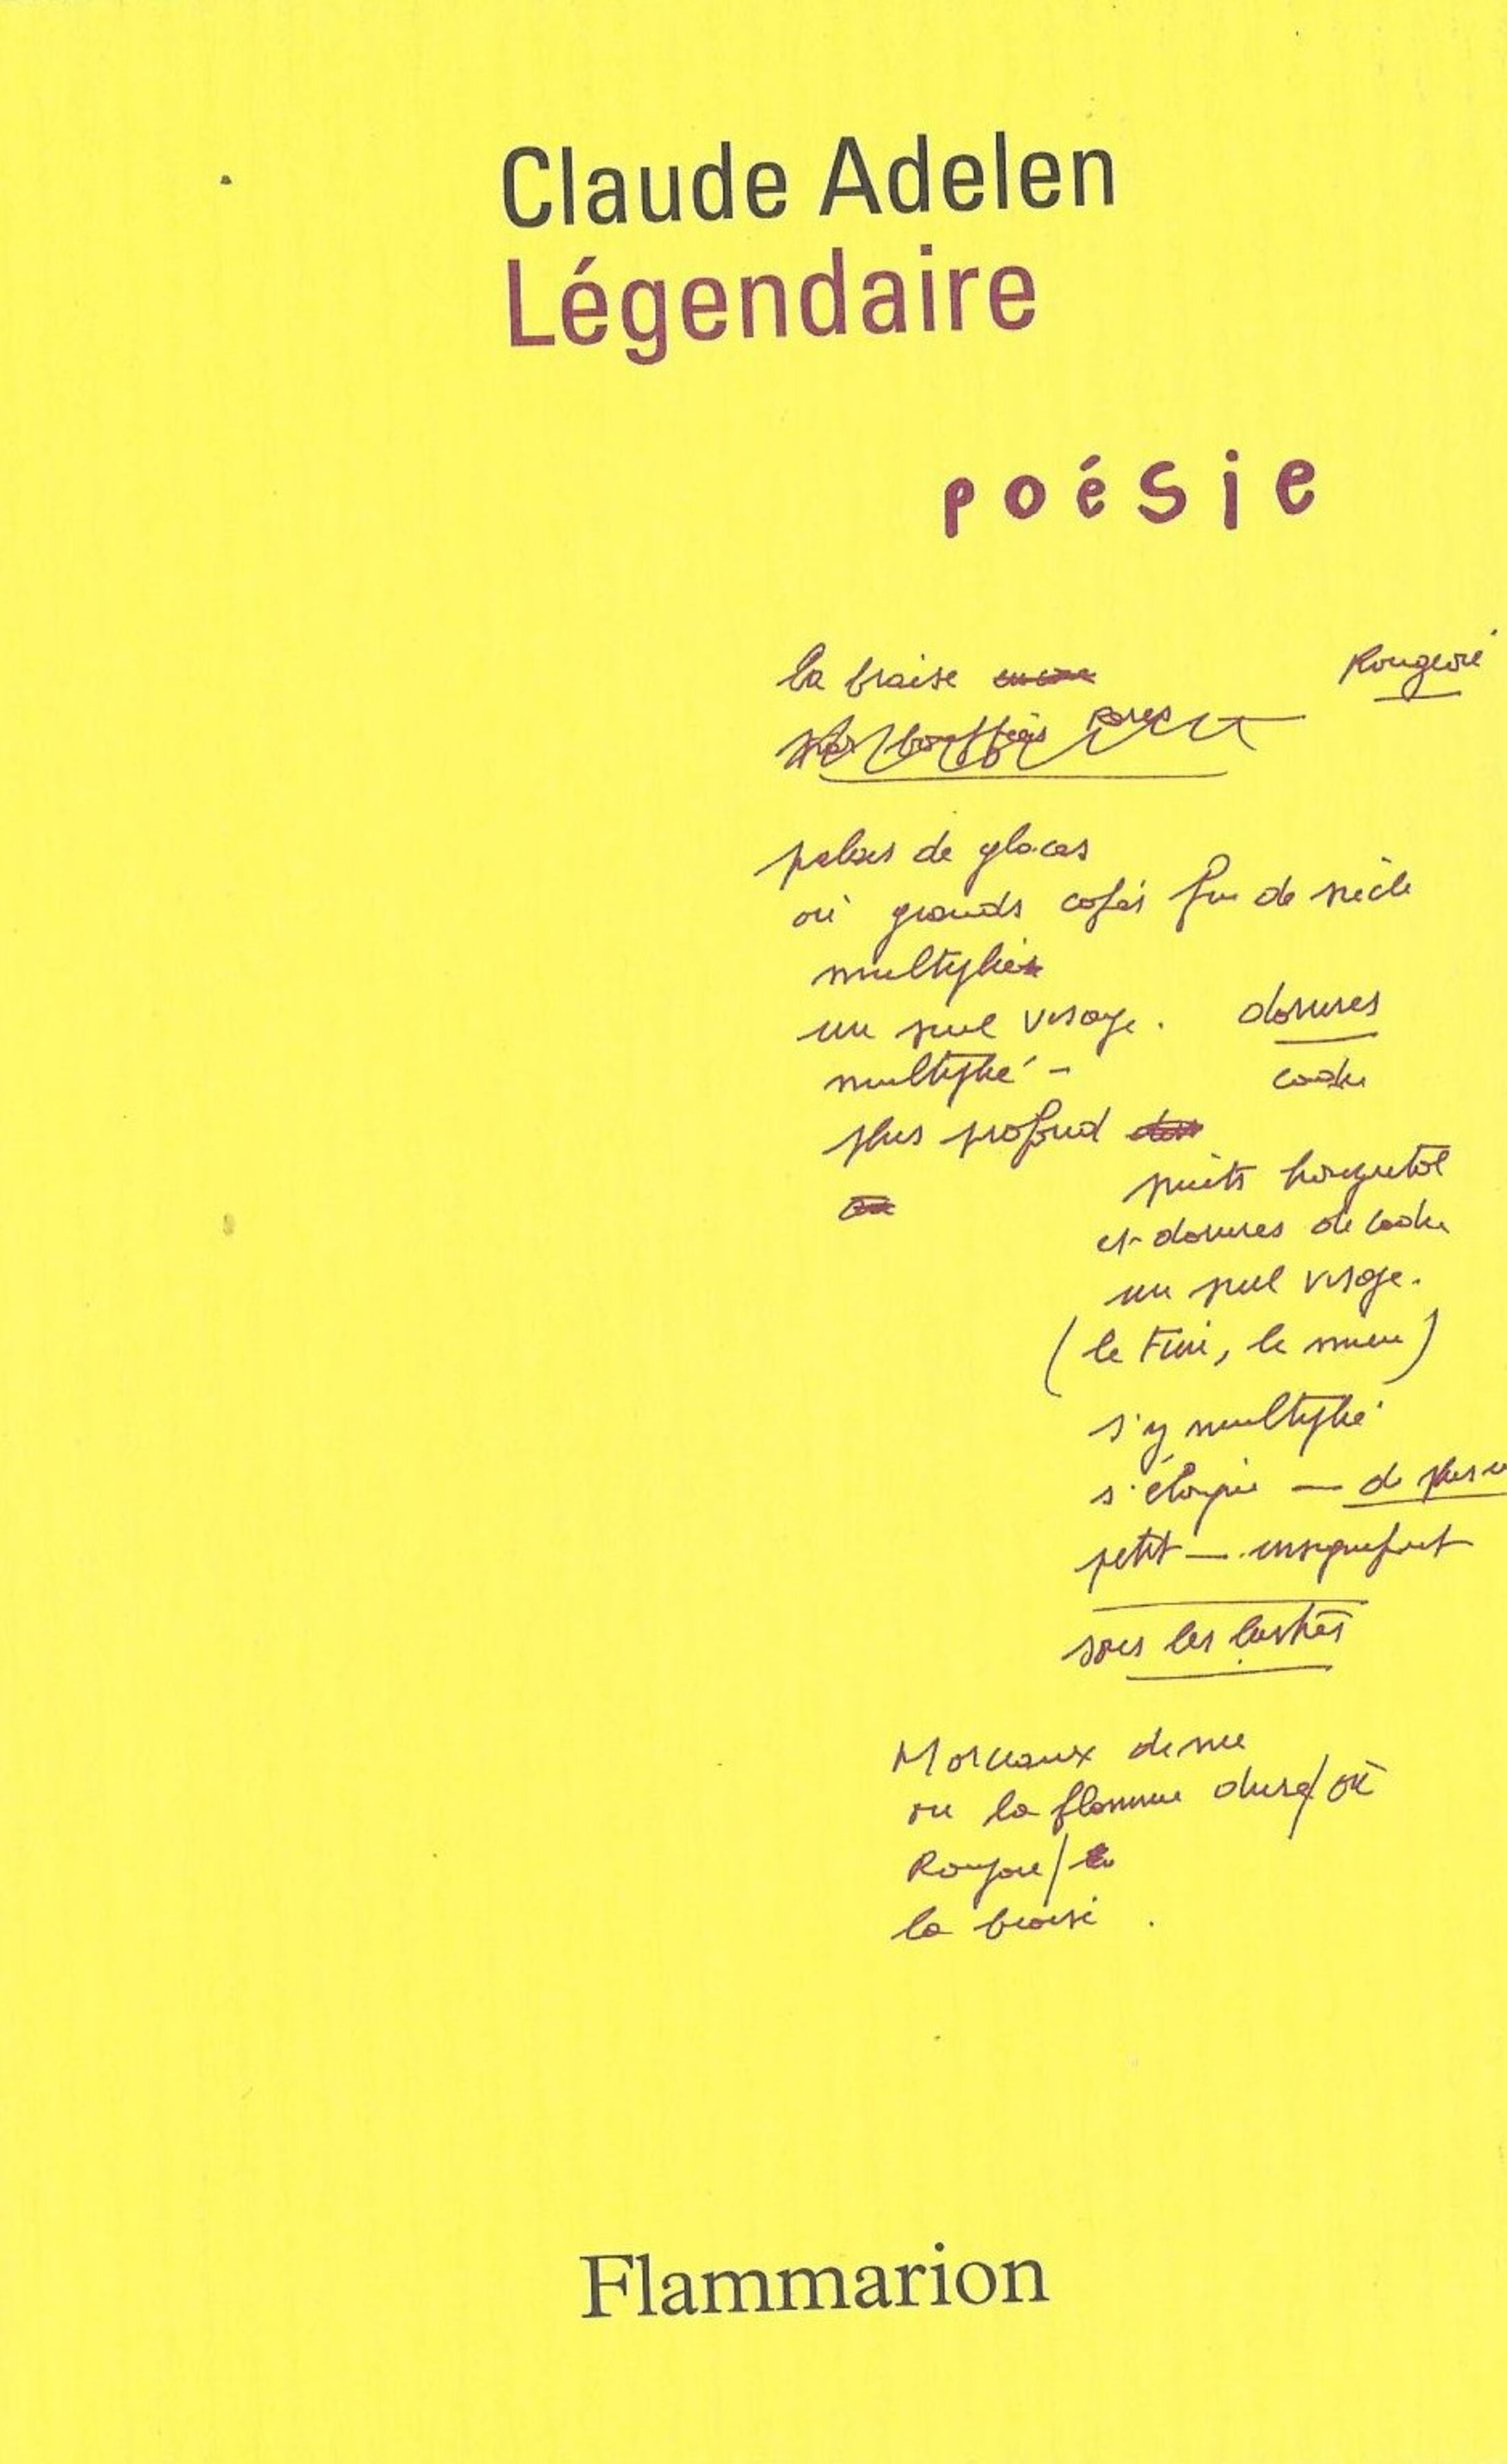 Claude Adelen
Légendaire
poésie
la braise encore
Rougeoie
palais de glaces
où grands cafés fin de siècle
multiplié
un seul visage. dorures
multiplié - cadre
plus profond dans
puits horizontal
et dorures de cadre
un seul visage.
(le Tien, le mien)
s'y multiplie
s'éloigne — de plus e
petit — insignifiant
sous les lustres
Morceaux de nue
où la flamme dure/où
Rougeoie/
la braise .
Flammarion